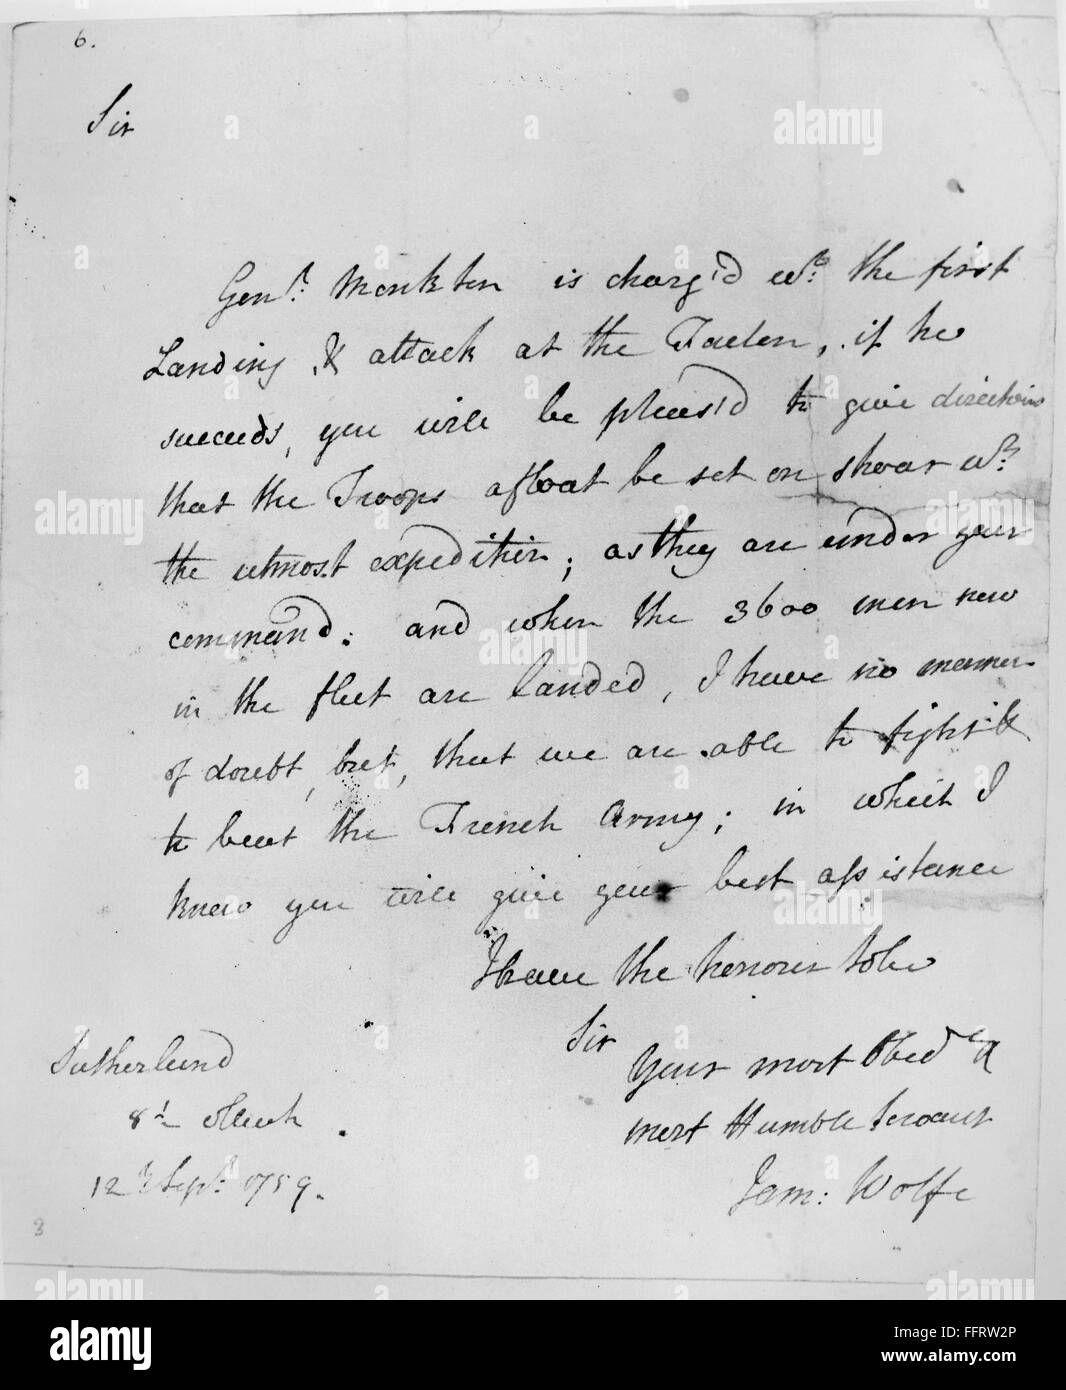 6.
Sir
Genl. Monkton is charg'd wth. the first
Landing & attack at the Faelon, if he
succeeds, you will be pleas'd to give directions
that the Troops afloat be set on shoar wth.
the utmost expedition; as they are under your
command. and when the 3600 men now
in the fleet are landed, I have no manner
of doubt, but, that we are able to fight &
to beat the French Army; in which I
know you will give your best assistance
I have the honour to be
Sir
Your most Obedt. &
most Humble Servant
Jam: Wolfe
Sutherland
8 o'Clock
12th Sepr. 1759.
3
alamy
alamy
alamy
alamy
alamy
alamy
alamy
alamy
a
Image ID: FFRW2P
www.alamy.com